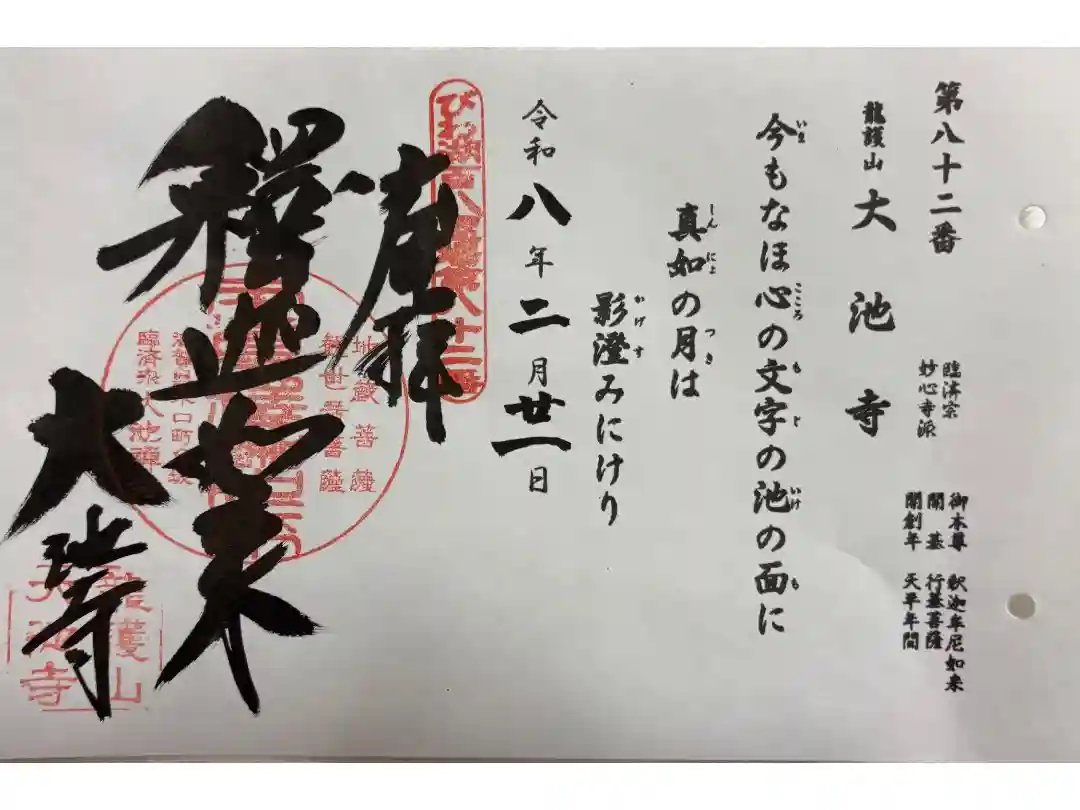 第八十二番
龍護山 大池寺
臨済宗
妙心寺派
御本尊 釈迦牟尼如来
開基 行基菩薩
開創年 天平年間
今もなほ心の文字の池の面に
真如の月は
影澄みにけり
令和八年二月廿一日
びわ湖百八霊場第八十二番
奉拝
釋迦如来
大池寺
地蔵菩薩
観世音菩薩
臨済宗大池禅寺
龍護山
大池寺